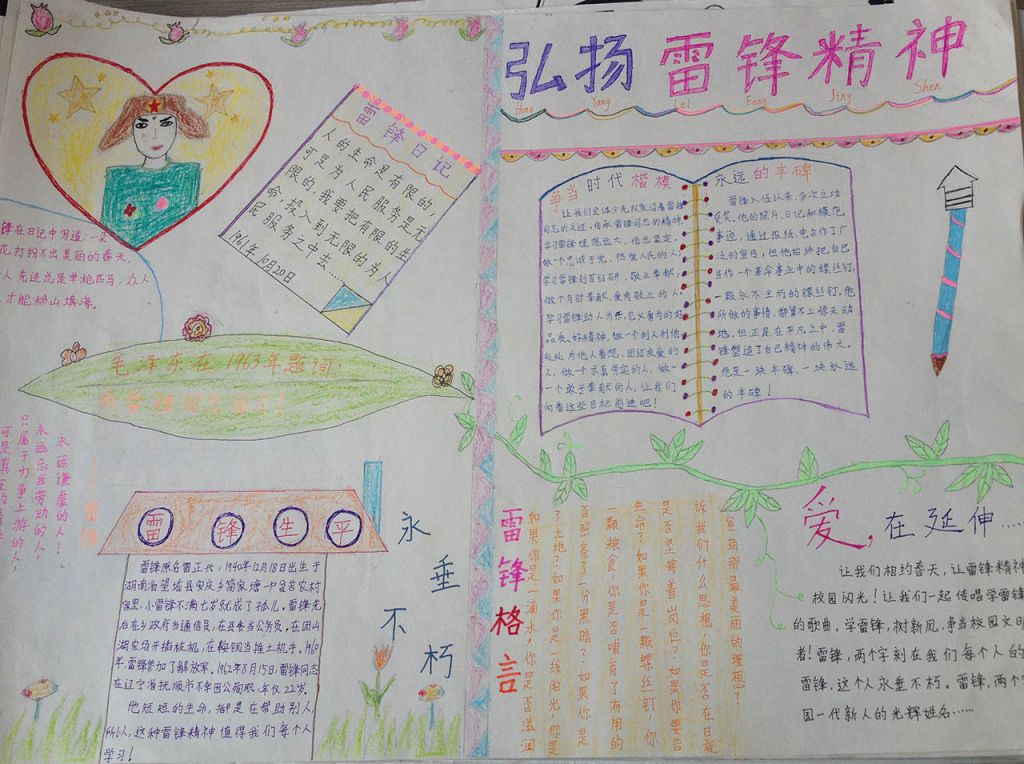 弘扬雷锋精神
Hong Yang Lei Feng Jing Shen
雷锋日记
人的生命是有限的,
可是为人民服务是无
限的,我要把有限的生
命,投入到无限的为人
民服务之中去……
1961年10月20日
锋在日记中写道:一朵
花打扮不出美丽的春天,
人先进总是单枪匹马,众人
才能移山填海。
毛泽东在1963年题词:
永远谦虚的人!
永远忘我劳动的人,
只属于力争上游的人,
雷锋生平
雷锋原名雷正兴,1940年12月18日出生于
湖南省望城县安庆乡简家塘一户贫苦农村
家里,小雷锋不满七岁就成了孤儿。雷锋先
后在乡政府当通信员,在县委当公务员,在团山
湖农场开拖拉机,在鞍钢当推土机手,1960
年,雷锋参加了解放军,1962年8月15日,雷锋同志
在辽宁省抚顺市不幸因公殉职,年仅22岁。
他短短的生命,都是在帮助别人,
所以,这种雷锋精神值得我们每个人
学习!
永垂不朽
争当时代楷模
让我们全体少先队员沿着雷锋
同志的足迹,传承雷锋同志的精神,
学习雷锋理想远大,信念坚定,
做一个忠诚于党、热爱人民的人;
学习雷锋刻苦钻研,敬业奉献,
做个与时奉献、爱岗敬业的人;
学习雷锋助人为乐,见义勇为的好
品质、好精神,做一个利人利他
处处为他人着想、团结友爱的
人,做一个求真务实的人,做一
个敢于奉献的人,让我们
向着这些目标前进吧!
永远的丰碑
雷锋入伍以来,多次立功
受奖,他的照片、日记和模范
事迹,通过报纸、电台作了广
泛的宣传,但他始终把自己
当作一个革命事业中的螺丝钉,
一颗永不生锈的螺丝钉,他
所做的事情,都算不上惊天动
地,但正是在平凡之中,雷
锋塑造了自己精神的伟大。
他是一块丰碑,一块永远
的丰碑!
雷锋格言
如果你是一滴水,你是否滋润
了土地?如果你是一线阳光,你是
否照亮了一分黑暗?如果你是
一颗粮食,你是否哺育了有用的
生命?如果你是一颗螺丝钉,你
是否坚守着岗位?如果你要告
诉我们什么思想,你是否在日夜
宣扬那最美丽的理想?
爱,在延伸……
让我们相约春天,让雷锋精神
校园闪光!让我们一起传唱学雷锋
的歌曲,学雷锋,树新风,争当校园文明
者!雷锋,两个字刻在我们每个人的
雷锋,这个人永垂不朽。雷锋,两个
国一代新人的光辉姓名……